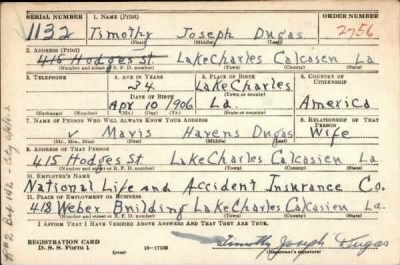 SERIAL NUMBER 1. NAME (Print) ORDER NUMBER
1132 Timothy Joseph Dugas 2756
(First) (Middle) (Last)
2. ADDRESS (Print)
415 Hodges St. LakeCharles Calcasen La.
(Number and street or R. F. D. number) (Town) (County) (State)
3. TELEPHONE 4. AGE IN YEARS 5. PLACE OF BIRTH 6. COUNTRY OF CITIZENSHIP
34 LakeCharles
(Town or county)
DATE OF BIRTH
Apr 10 1906 La. America
(Exchange) (No.) (Mo.) (Day) (Yr.) (State or country)
7. NAME OF PERSON WHO WILL ALWAYS KNOW YOUR ADDRESS 8. RELATIONSHIP OF THAT PERSON
v Mavis Havens Dugas Wife
(Mr., Mrs., Miss) (First) (Middle) (Last)
9. ADDRESS OF THAT PERSON
415 Hodges St. LakeCharles Calcasien La.
(Number and street or R. F. D. number) (Town) (County) (State)
10. EMPLOYER'S NAME
National Life and Accident Insurance Co.
11. PLACE OF EMPLOYMENT OR BUSINESS
418 Weber Bnilding LakeCharles Calcasien La.
(Number and street or R. F. D. number) (Town) (County) (State)
I AFFIRM THAT I HAVE VERIFIED ABOVE ANSWERS AND THAT THEY ARE TRUE.
REGISTRATION CARD
D. S. S. Form 1 (over) 16-17105 Timothy Joseph Dugas
(Registrant's signature)